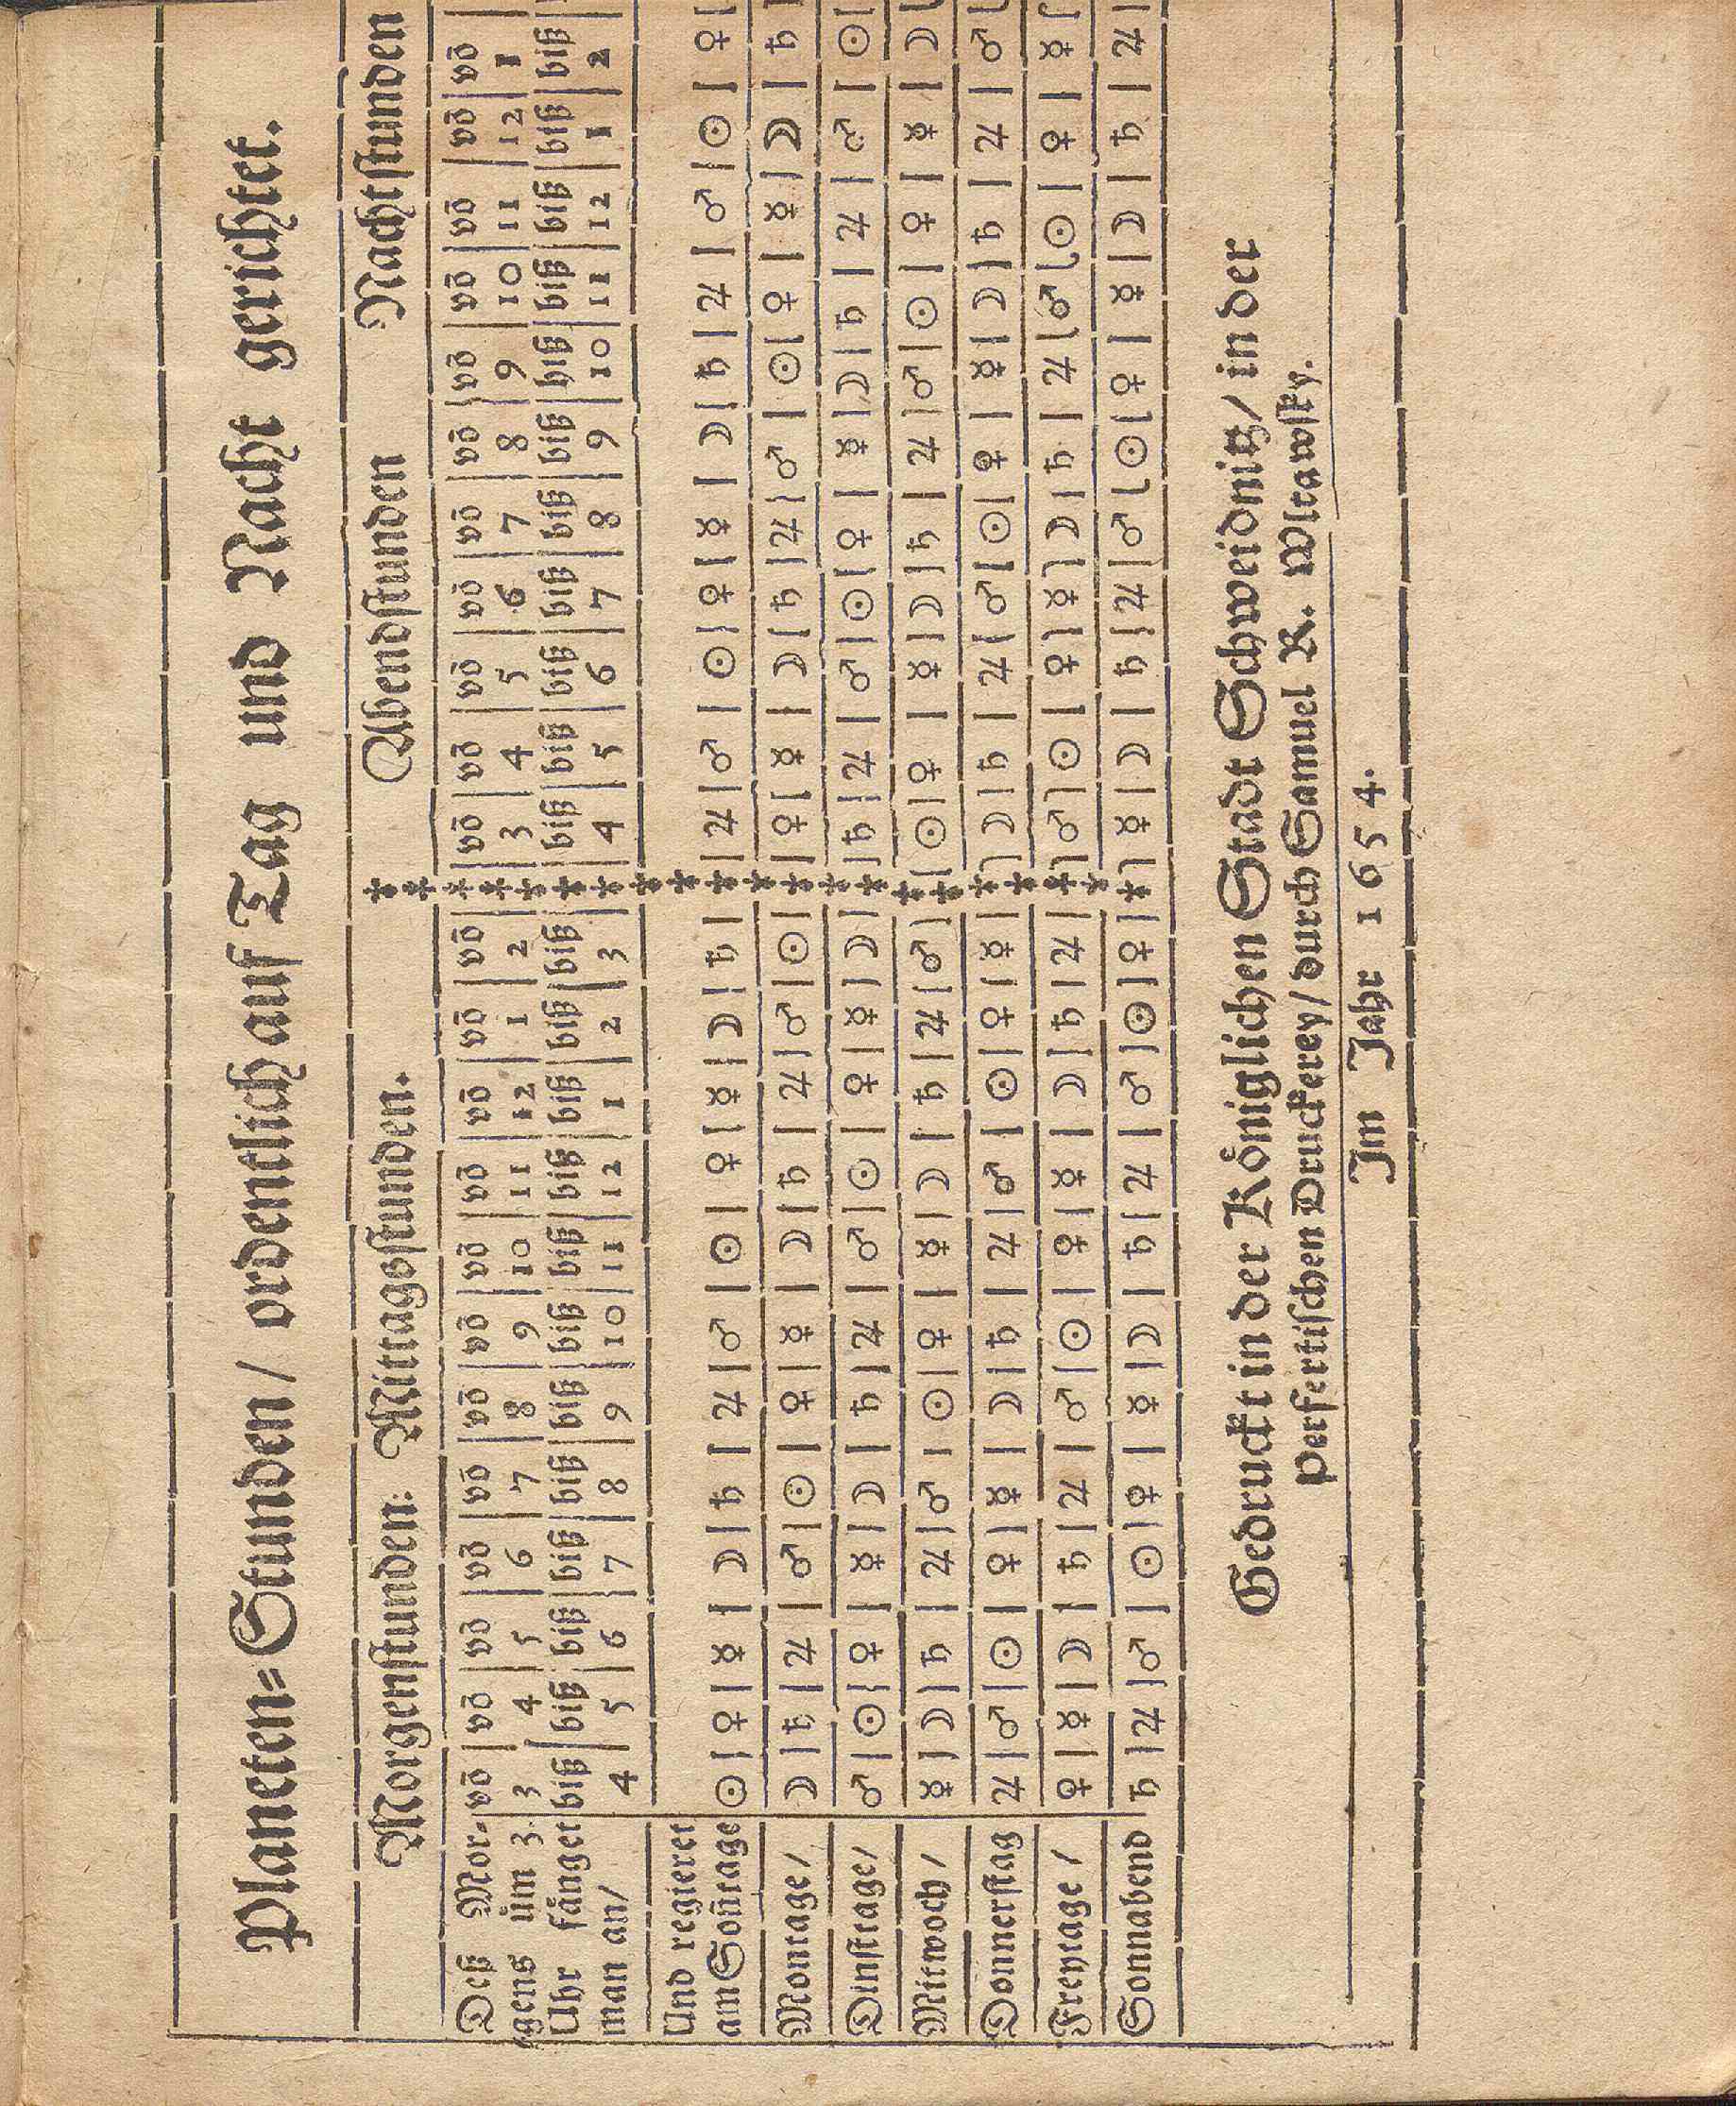 Planeten=Stunden / ordentlich auf Tag und Nacht gerichtet.
Morgenstunden: Mittagsstunden. Abendstunden Nachtstunden
Deß Mor= vō vō vō vō vō vō vō vō vō vō vō vō vō vō vō vō vō vō vō vō vō vō vō
gens üm 3. 3 4 5 6 7 8 9 10 11 12 1 2 3 4 5 6 7 8 9 10 11 12 1
Uhr fänget biß biß biß biß biß biß biß biß biß biß biß biß biß biß biß biß biß biß biß biß biß biß biß
man an/ 4 5 6 7 8 9 10 11 12 1 2 3 4 5 6 7 8 9 10 11 12 1 2
Und regieret
am Soñtage ☉ ♀ ☿ ☽ ♄ ♃ ♂ ☉ ♀ ☿ ☽ ♄ ♃ ♂ ☉ ♀ ☿ ☽ ♄ ♃ ♂ ☉ ♀
Montage / ☽ ♄ ♃ ♂ ☉ ♀ ☿ ☽ ♄ ♃ ♂ ☉ ♀ ☿ ☽ ♄ ♃ ♂ ☉ ♀ ☿ ☽ ♄
Dinstage/ ♂ ☉ ♀ ☿ ☽ ♄ ♃ ♂ ☉ ♀ ☿ ☽ ♄ ♃ ♂ ☉ ♀ ☿ ☽ ♄ ♃ ♂ ☉
Mitwoch / ☿ ☽ ♄ ♃ ♂ ☉ ♀ ☿ ☽ ♄ ♃ ♂ ☉ ♀ ☿ ☽ ♄ ♃ ♂ ☉ ♀ ☿ ☽
Donnerstag ♃ ♂ ☉ ♀ ☿ ☽ ♄ ♃ ♂ ☉ ♀ ☿ ☽ ♄ ♃ ♂ ☉ ♀ ☿ ☽ ♄ ♃ ♂
Freytage / ♀ ☿ ☽ ♄ ♃ ♂ ☉ ♀ ☿ ☽ ♄ ♃ ♂ ☉ ♀ ☿ ☽ ♄ ♃ ♂ ☉ ♀ ☿
Sonnabend ♄ ♃ ♂ ☉ ♀ ☿ ☽ ♄ ♃ ♂ ☉ ♀ ☿ ☽ ♄ ♃ ♂ ☉ ♀ ☿ ☽ ♄ ♃
Gedruckt in der Königlichen Stadt Schweidnitz / in der
Perfertischen Druckerey / durch Samuel R. Wltawsky.
Im Jahr 1654.